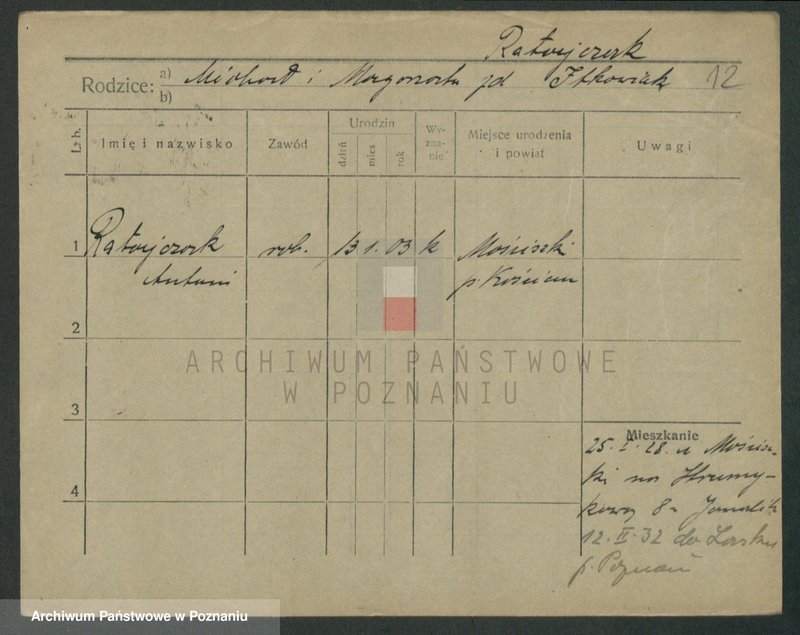 Ratajczak
Rodzice: a) Michał i Małgorzata zd Itkowiak 12
b)
L: b. Imię i nazwisko Zawód Urodzin dzień mies rok Wy-zna-nie Miejsce urodzenia i powiat Uwagi
1 Ratajczak rob. 13 1. 03 k Mościszki
Antoni p. Kościan
2
ARCHIWUM PAŃSTWOWE
W POZNANIU
3
Mieszkanie
25. I. 28. z Mościsz-
ki na Strumy-
kową 8
4
12. II. 32 do Lasku
p. Poznań
Archiwum Państwowe w Poznaniu